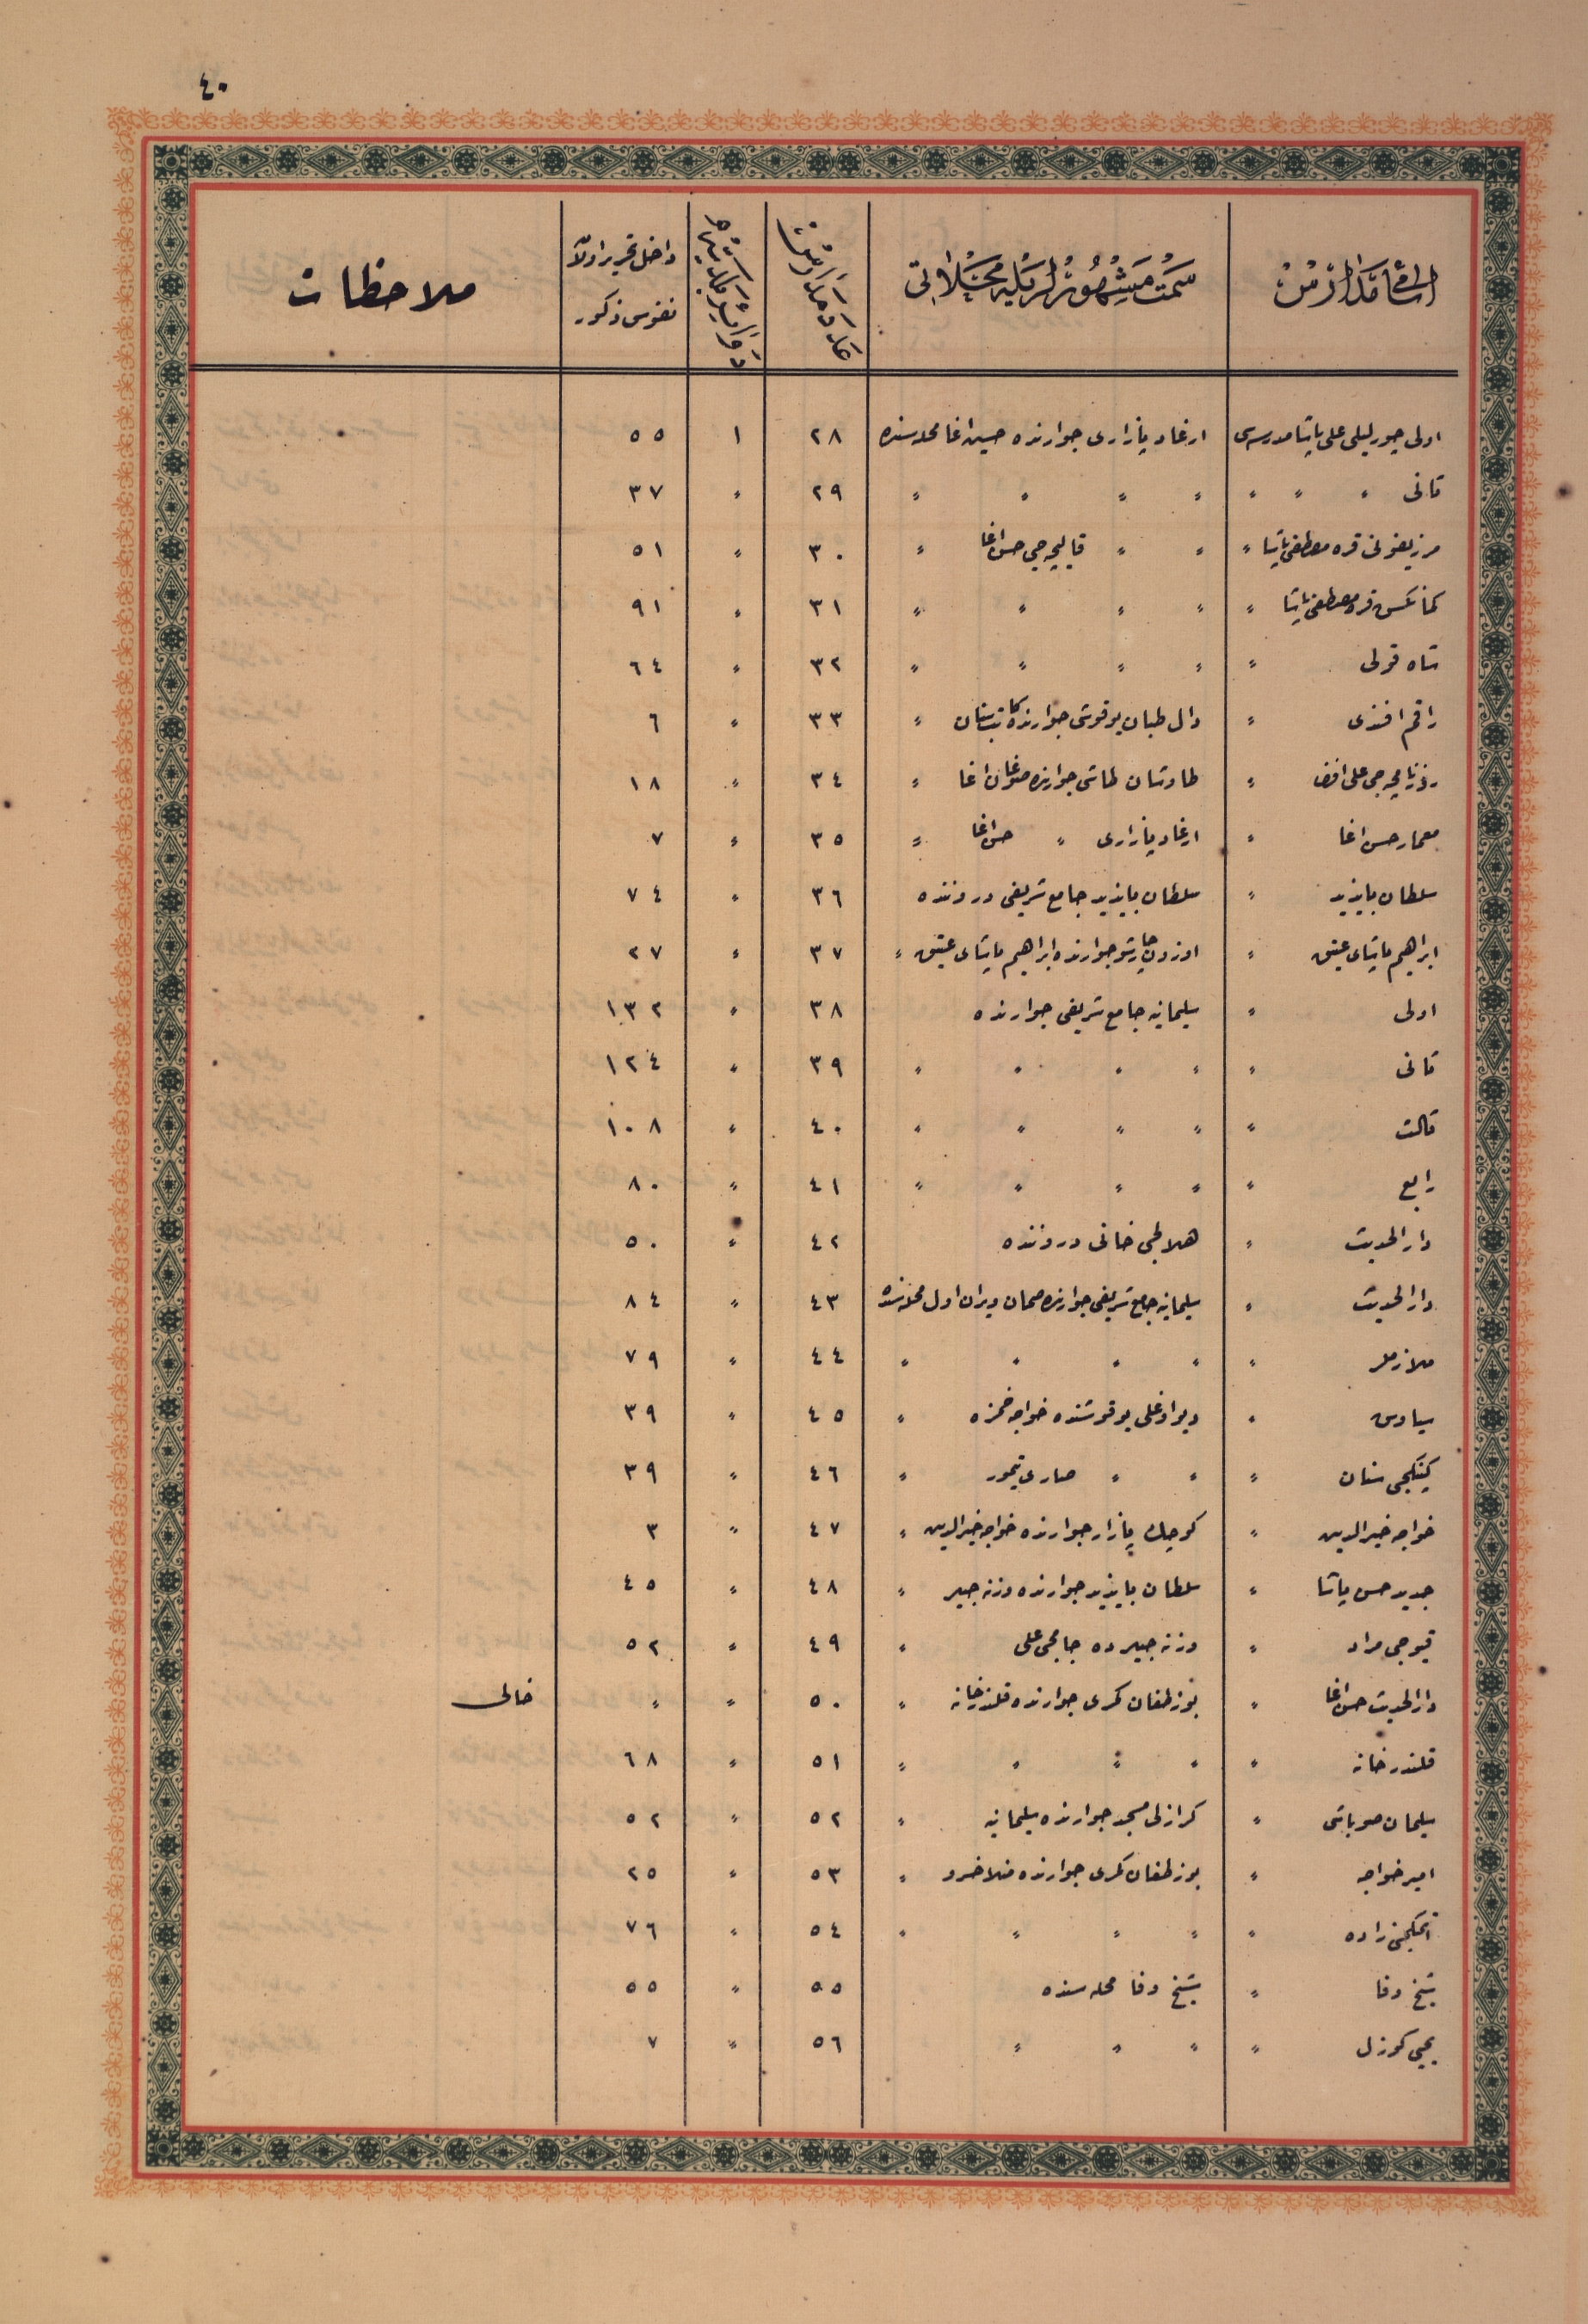 ٤٠
اسامئ مدارس سمت مشهورلريله محلاتى عدد مدارس دوائر بلديه داخل تحرير اولان نفوس ذكور ملاحظات
اولى چورليلى على پاشا مدرسه‌سى ارغاد پازارى جوارنده حسين اغا محله‌سنده ٢٨ ١ ٥٥
ثانى 〃 〃 〃 〃 〃 〃 〃 〃 ٢٩ 〃 ٣٧
مرزيفونى قره مصطفى پاشا 〃 〃 〃 قاليچه‌جى حسن اغا 〃 ٣٠ 〃 ٥١
كمانكش قره مصطفى پاشا 〃 〃 〃 〃 〃 ٣١ 〃 ٩١
شاه قولى 〃 〃 〃 〃 〃 ٣٢ 〃 ٦٤
راقم افندى 〃 دال طبان يوقوشى جوارنده كاتب سنان 〃 ٣٣ 〃 ٦
روزنامچه‌جى على افندى 〃 طاوشان طاشى جوارنده صوغان اغا 〃 ٣٤ 〃 ١٨
معمار حسن اغا 〃 ارغاد پازارى 〃 حسن اغا 〃 ٣٥ 〃 ٧
سلطان بايزيد 〃 سلطان بايزيد جامع شريفى دروننده ٣٦ 〃 ٧٤
ابراهيم پاشاى عتيق 〃 اوزون چارشو جوارنده ابراهيم پاشاى عتيق 〃 ٣٧ 〃 ٢٧
اولى 〃 سليمانيه جامع شريفى جوارنده ٣٨ 〃 ١٣٢
ثانى 〃 〃 〃 〃 〃 ٣٩ 〃 ١٢٤
ثالث 〃 〃 〃 〃 〃 ٤٠ 〃 ١٠٨
رابع 〃 〃 〃 〃 〃 ٤١ 〃 ٨٠
دار الحديث 〃 هلالجى خانى دروننده ٤٢ 〃 ٥٠
دار الحديث 〃 سليمانيه جامع شريفى جوارنده صمان ويران اول محله‌سنده ٤٣ 〃 ٨٤
ملازملر 〃 〃 〃 〃 〃 ٤٤ 〃 ٧٩
سياوش 〃 ديو اوغلى يوقوشنده خواجه حمزه 〃 ٤٥ 〃 ٣٩
كپنكجى سنان 〃 〃 〃 صارى تيمور 〃 ٤٦ 〃 ٣٩
خواجه خير الدين 〃 كوچك پازار جوارنده خواجه خير الدين 〃 ٤٧ 〃 ٣
جديد حسن پاشا 〃 سلطان بايزيد جوارنده وزنه‌جيلر 〃 ٤٨ 〃 ٤٥
قيوجى مراد 〃 وزنه‌جيلرده جامجى على 〃 ٤٩ 〃 ٥٢
دار الحديث حسن اغا 〃 بوز طغان كمرى جوارنده قلندرخانه 〃 ٥٠ 〃 〃 خالى
قلندرخانه 〃 〃 〃 〃 〃 ٥١ 〃 ٦٨
سليمان صوباشى 〃 كرازلى مسجد جوارنده سليمانيه 〃 ٥٢ 〃 ٥٢
امير خواجه 〃 بوز طغان كمرى جوارنده منلا خسرو 〃 ٥٣ 〃 ٢٥
اتمكجى زاده 〃 〃 〃 〃 〃 ٥٤ 〃 ٧٦
شيخ وفا 〃 شيخ وفا محله سنده ٥٥ 〃 ٥٥
يحيى كوزل 〃 〃 〃 〃 ٥٦ 〃 ٧